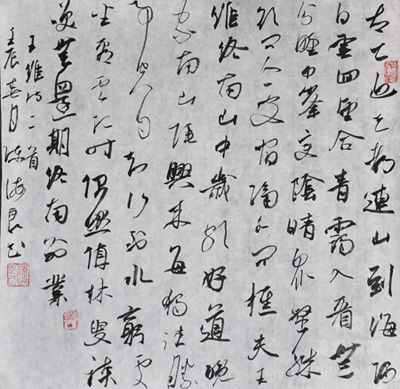 太乙近天都連山到海隅
白雲回望合青靄入看無
分野中峯變陰晴眾壑殊
欲投人處宿隔水問樵夫王
維終南山中歲頗好道晚
家南山陲興來每獨往勝
事空自知行到水窮處
坐看雲起時偶然值林叟談
笑無還期終南別業
王維詩二首
壬辰春月陳海良書